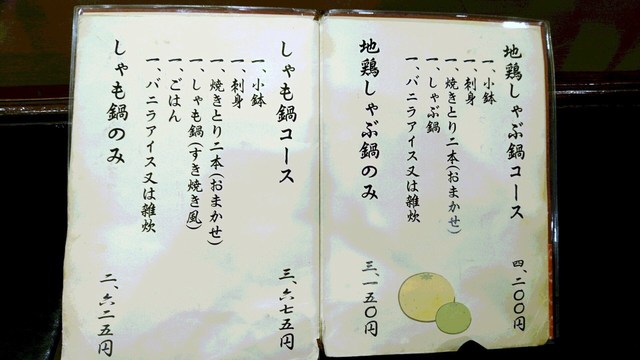 地鶏しゃぶ鍋コース 四、二〇〇円
一、小鉢
一、刺身
一、焼きとり二本(おまかせ)
一、しゃぶ鍋
一、バニラアイス又は雑炊
地鶏しゃぶ鍋のみ 三、一五〇円
しゃも鍋コース 三、六七五円
一、小鉢
一、刺身
一、焼きとり二本(おまかせ)
一、しゃも鍋(すき焼き風)
一、ごはん
一、バニラアイス又は雑炊
しゃも鍋のみ 二、六二五円